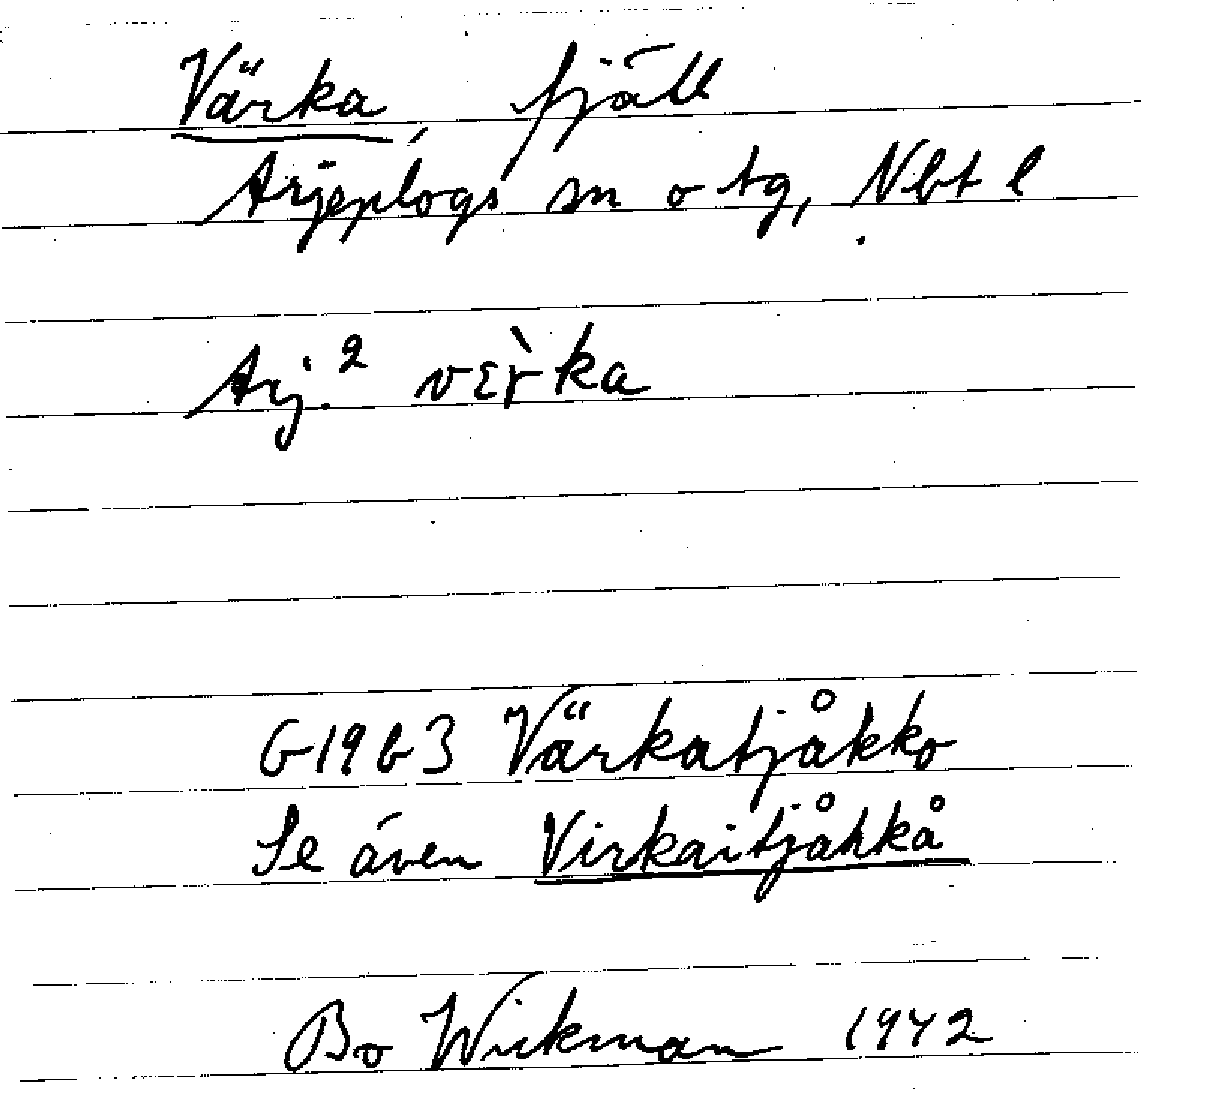 Värka, fjäll
Arjeplogs sn o tg, Nbt l
Arj.² vɛr̀ka
G19b3 Värkatjåkko
Se även Virkaitjåhkå
Bo Wickman 1942